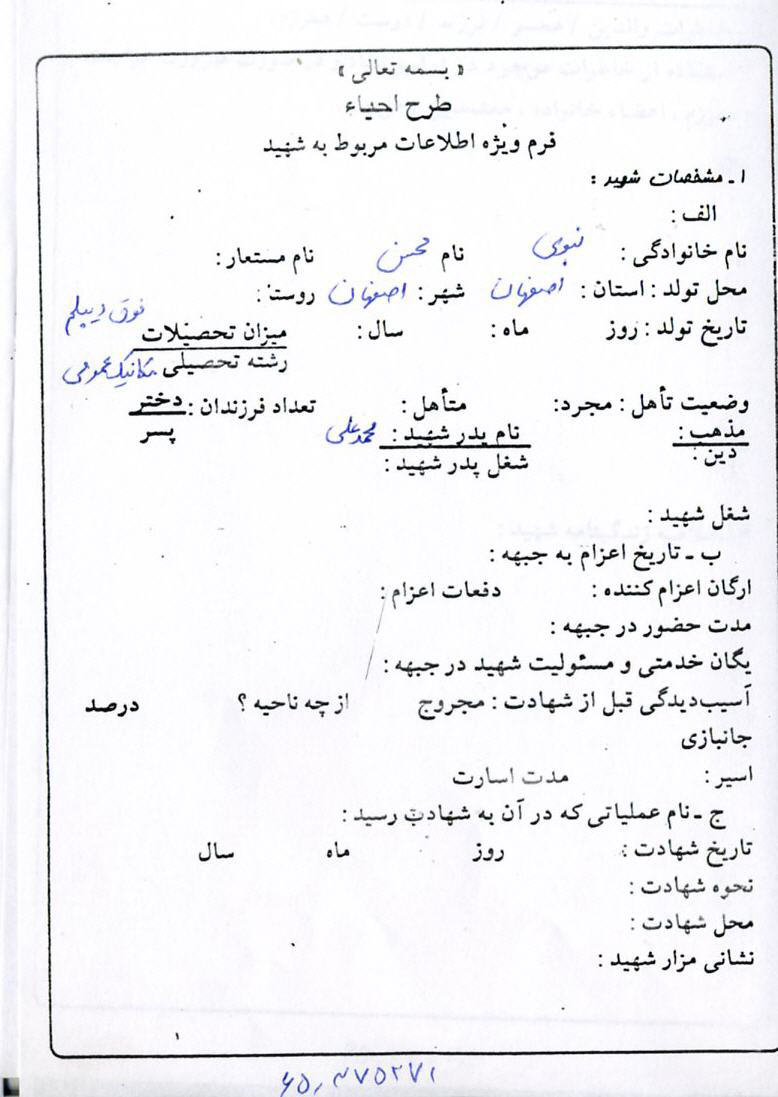 « بسمه تعالی »
طرح احیاء
فرم ویژه اطلاعات مربوط به شهید
۱ ـ مشخصات شهید :
الف :
نام خانوادگی : نبوی نام محسن نام مستعار :
محل تولد : استان : اصفهان شهر : اصفهان روستا :
تاریخ تولد : روز ماه : سال : میزان تحصیلات فوق دیپلم
رشته تحصیلی مکانیک عمومی
وضعیت تأهل : مجرد : متأهل : تعداد فرزندان : دختر
پسر
مذهب : نام پدر شهید : محمدعلی
دین : شغل پدر شهید :
شغل شهید :
ب ـ تاریخ اعزام به جبهه :
ارگان اعزام کننده : دفعات اعزام :
مدت حضور در جبهه :
یگان خدمتی و مسئولیت شهید در جبهه :
آسیب‌دیدگی قبل از شهادت : مجروح از چه ناحیه ؟ درصد
جانبازی
اسیر : مدت اسارت
ج ـ نام عملیاتی که در آن به شهادت رسید :
تاریخ شهادت : روز ماه سال
نحوه شهادت :
محل شهادت :
نشانی مزار شهید :
۱